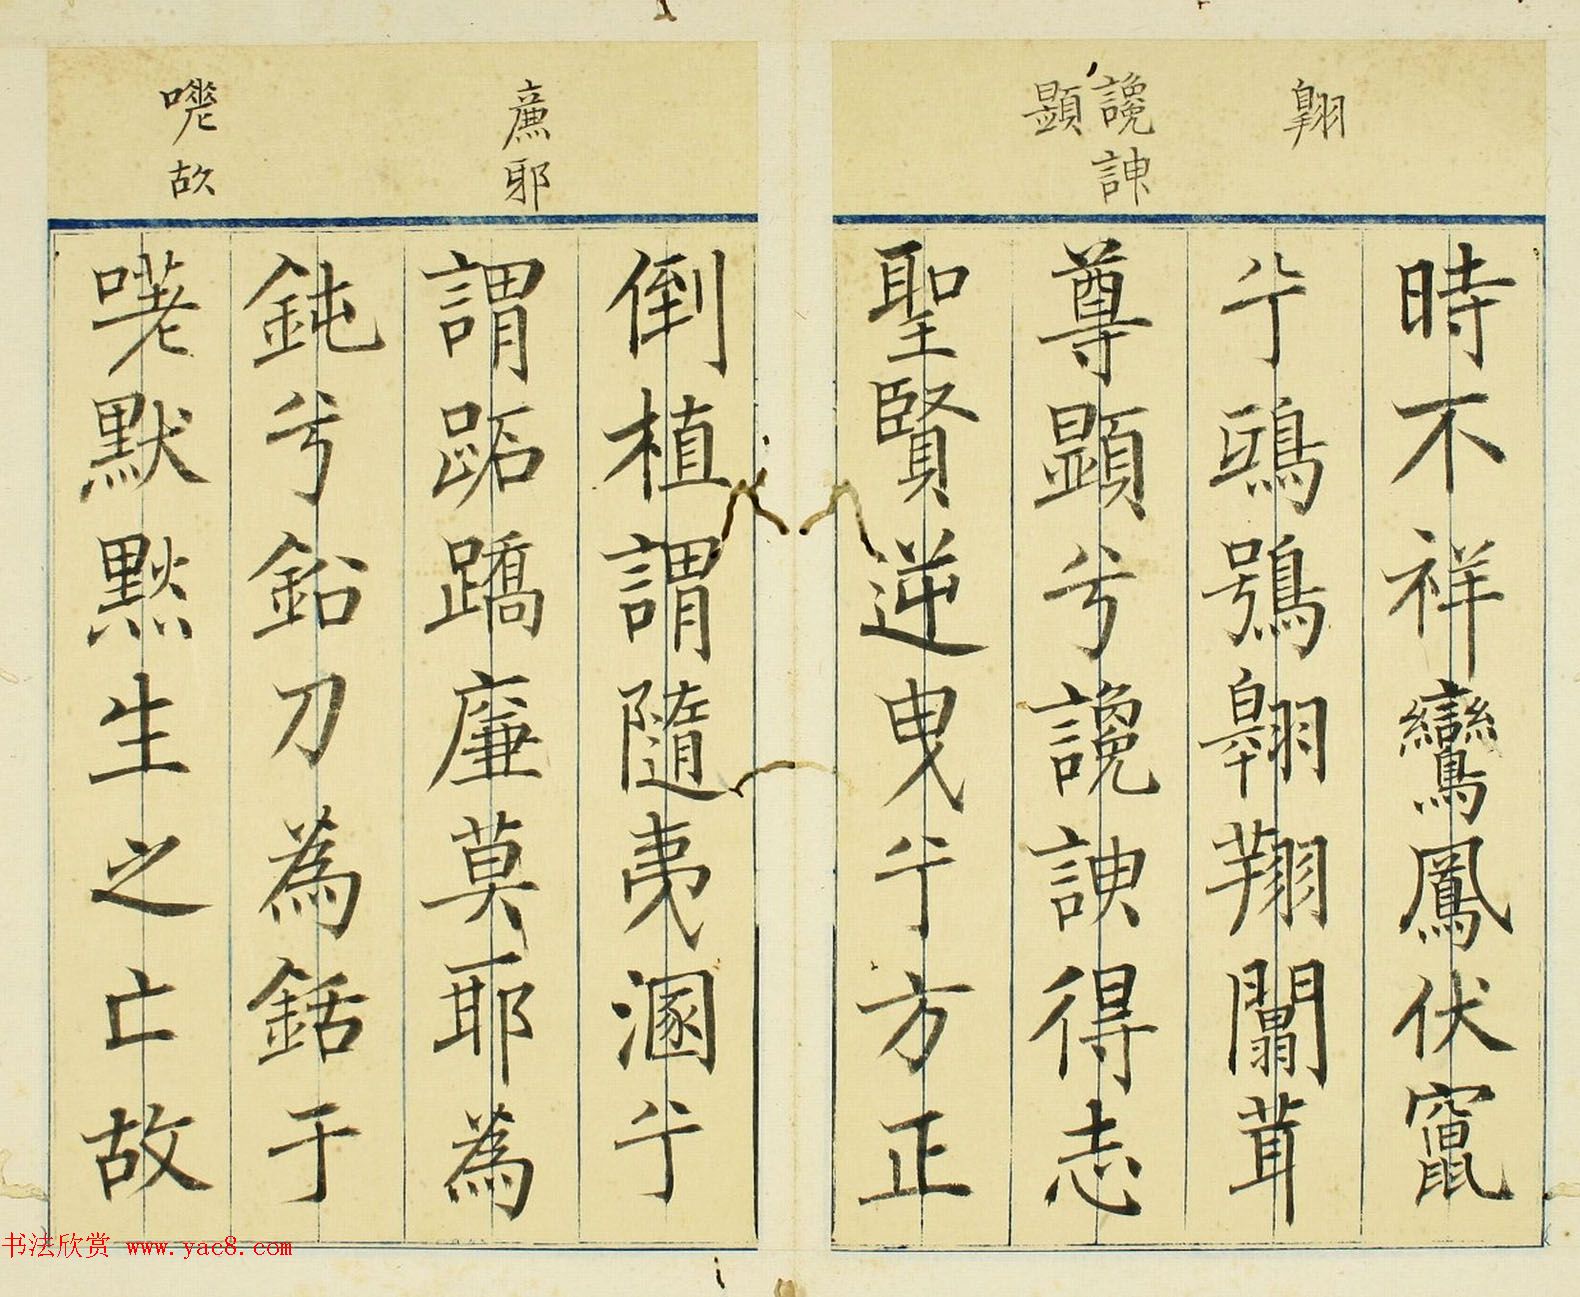 翱
讒諛
顯
廉邪
嗟故
時不祥鸞鳳伏竄
兮鴟鴞翱翔闒茸
尊顯兮讒諛得志
聖賢逆曳兮方正
倒植謂隨夷溷兮
謂跖蹻廉莫耶為
鈍兮鉛刀為銛于
嗟默黙生之亡故
书法欣赏 www.yac8.com